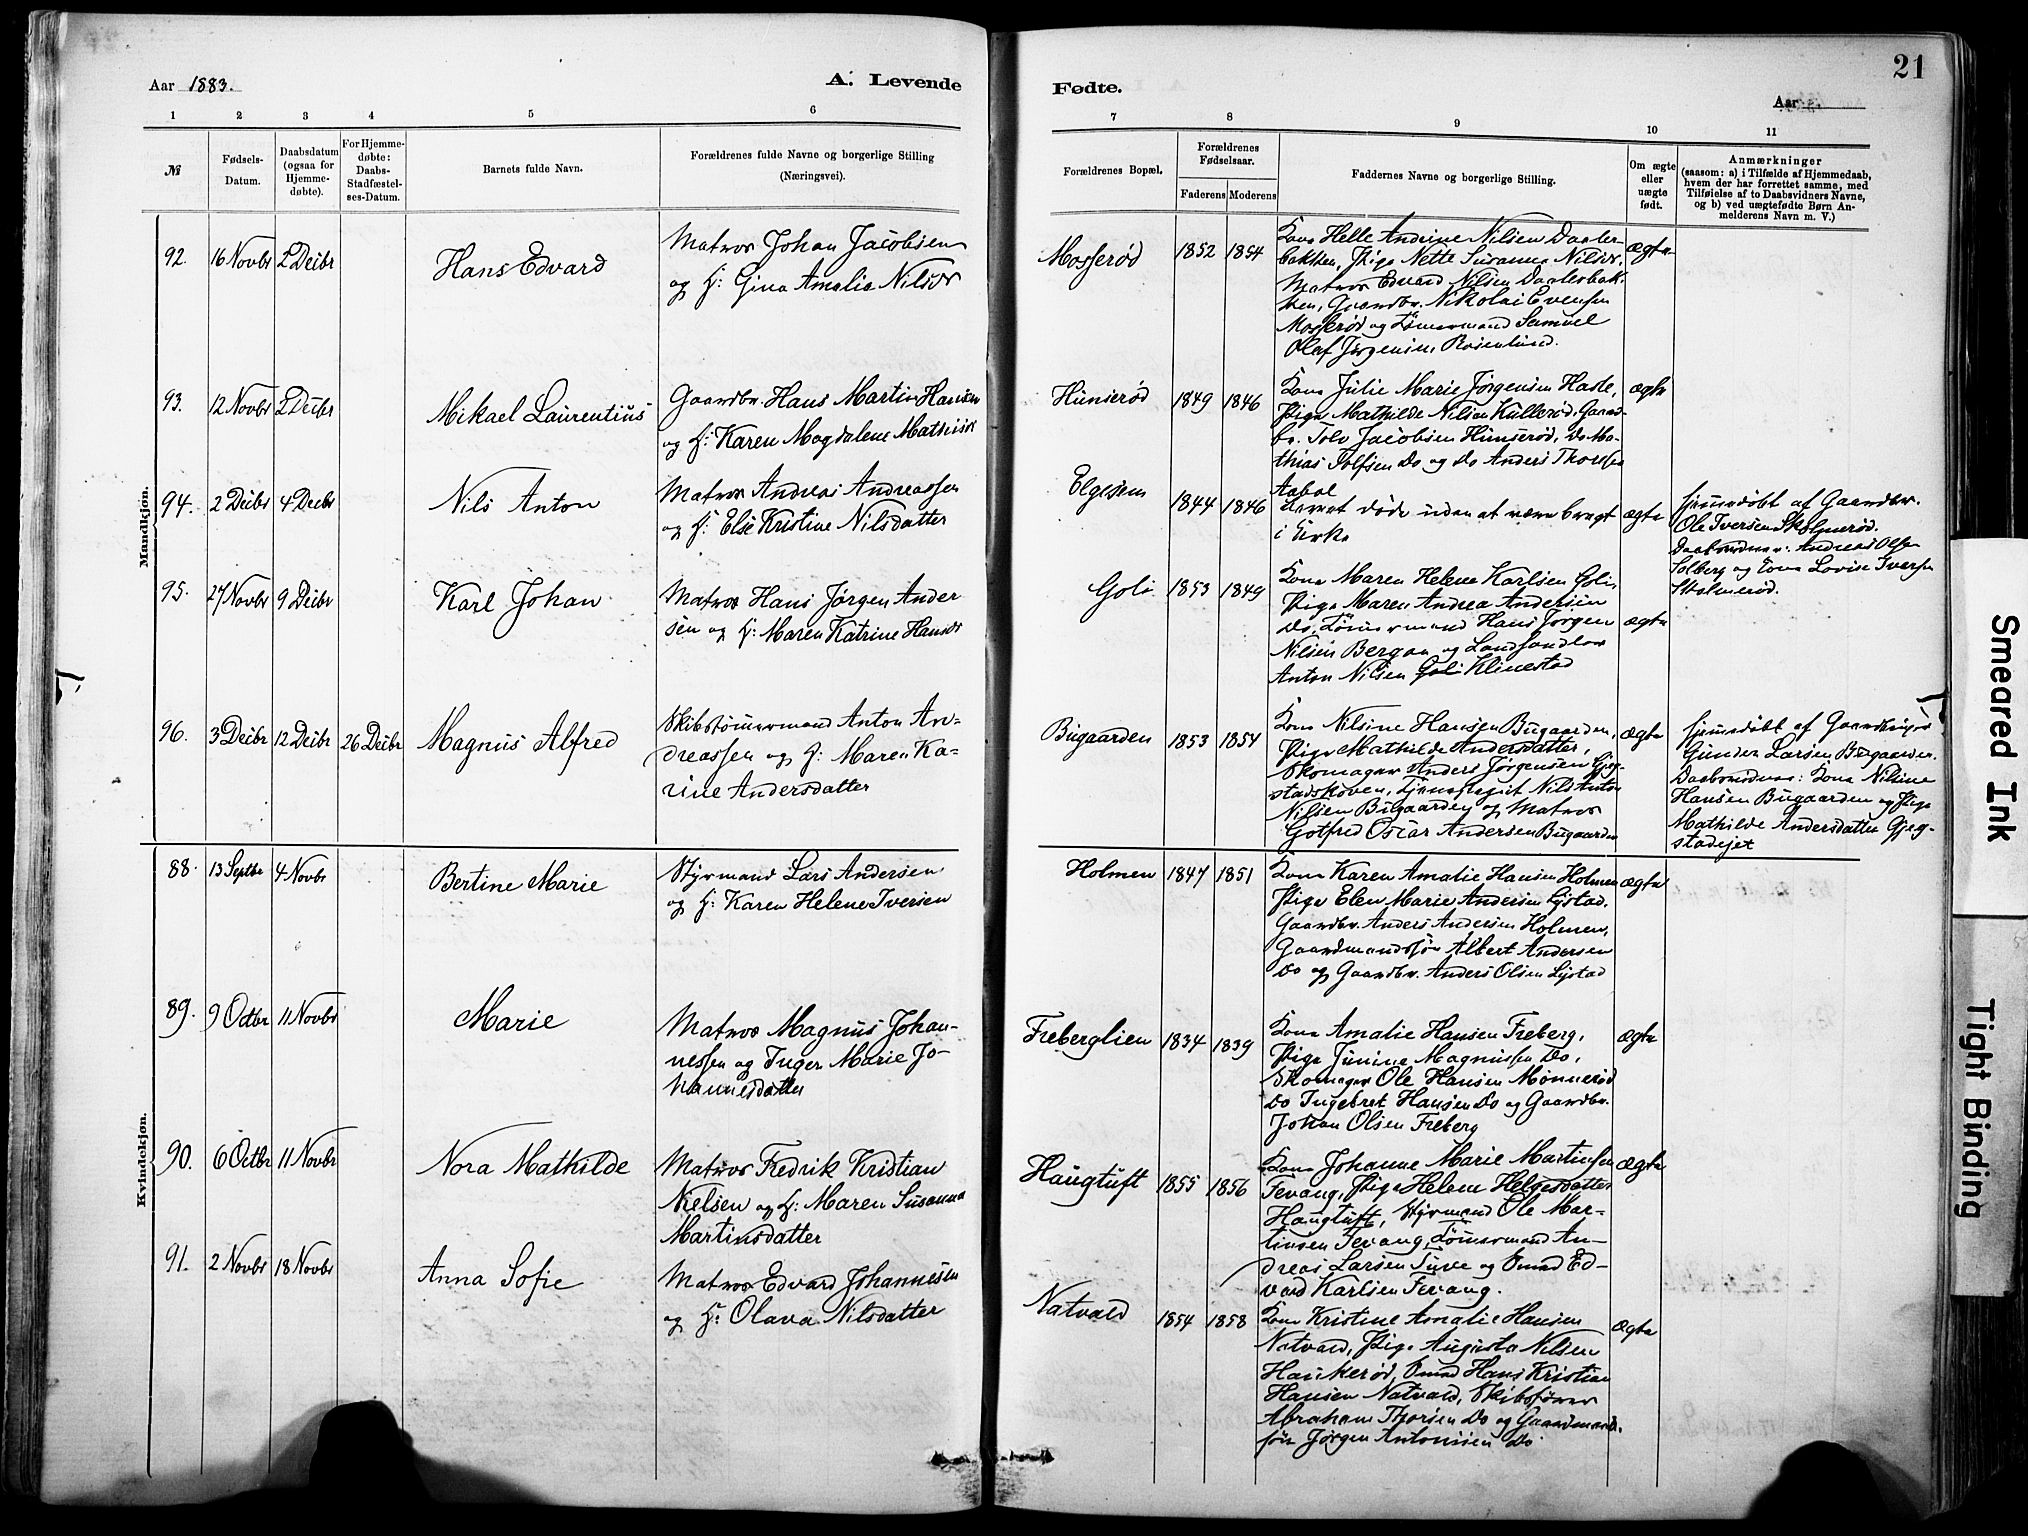 21
Aar 1883.
A. Levende
Fødte.
Aar
1
2
3
4
5
6
7
8
9
10
11
№
Fødsels-
Datum.
Daabsdatum
(ogsaa for
Hjemme-
døbte).
For Hjemme-
døbte:
Daabs-
Stadfæstel-
ses-Datum.
Barnets fulde Navn.
Forældrenes fulde Navne og borgerlige Stilling
(Næringsvei).
Forældrenes Bopæl.
Forældrenes
Fødselsaar.
Faderens
Moderens
Faddernes Navne og borgerlige Stilling.
Om ægte
eller
uægte
født.
Anmærkninger
(saasom: a) i Tilfælde af Hjemmedaab,
hvem der har forrettet samme, med
Tilføielse af to Daabsvidners Navne,
og b) ved uægtefødte Børn An-
melderens Navn m. V.)
Mandkjøn.
92.
16 Novbr
2 Decbr
Hans Edvard
Matros Johan Jacobsen
og H: Gina Amalie Nilsdr
Mosserød
1852
1854
Kona Helle Andrine Nilsen Daaler-
bakken, Pige Nette Susanne Nilsdr.
Matros Edvard Nilsen Daalerbak-
ken, Gaardbr. Nikolai Evensen
Mosserød og Tømermand Samuel
Olaf Jørgensen Rosenlund.
ægte
93.
12 Novbr
2 Decbr
Mikael Laurentius
Gaardbr. Hans Martin Hansen
og H: Karen Magdalene Mathisdr
Hunserød
1849
1846
Kona Julie Marie Jørgensen Hasle,
Pige Mathilde Nilsen Kullerød, Gaard-
br. Tolv Jacobsen Hunserød, Do Ma-
thias Tolfsen Do og Do Anders Thoresen
Aabol
ægte
94.
2 Decbr
4 Decbr
Nils Anton
Matros Andreas Andreassen
og H: Else Kristine Nilsdatter
Elgesem
1844
1846
Barnet døde uden at være bragt
i Kirke
ægte
Hjemmedøbt af Gaardbr.
Ole Iversen Skolmerød.
Daabsvidner: Andreas Olsen
Solberg og Kona Lovise Iversen
Skolmerød.
95.
27 Novbr
9 Decbr
Karl Johan
Matros Hans Jørgen Ander
sen og H: Maren Katrine Hansdr
Goli
1853
1849
Kona Maren Helene Karlsen Goli,
Pige Maren Andrea Andersen
Do, Tømmermand Hans Jørgen
Nilsen Bergan og Landhandler
Anton Nilsen Goli Klinestad
ægte
96.
3 Decbr
12 Decbr
26 Decbr
Magnus Alfred
Skibstømmermand Anton An-
dreassen og H: Maren Ka-
rine Andersdatter
Bugaarden
1853
1854
Kona Nilsine Hansen Bugaarden,
Pige Mathilde Andersdatter,
Skomager Anders Jørgensen Gjeg-
stadskoven, Tjenestegut Nils Anton
Nilsen Bugaarden og Matros
Gotfred Oscar Andersen Bugaarden
ægte
Hjemmedøbt af Gaardbruger
Gunder Larsen Bugaarden.
Daabsvidner: Kona Nilsine
Hansen Bugaarden og Pige
Mathilde Andersdatter Gjeg-
stadejet
Kvindekjøn.
88.
13 Septbr
4 Novbr
Bertine Marie
Styrmand Lars Andersen
og H: Karen Helene Iversen
Holmen
1847
1851
Kona Karen Amalie Hansen Holmen
Pige Elen Marie Andersen Lystad.
Gaardbr. Anders Andersen Holmen,
Gaardmandssøn Albert Andersen
Do og Gaardbr. Anders Olsen Lystad
ægte
89.
9 Octbr
11 Novbr
Marie
Matros Magnus Johan-
nessen og Inger Marie Jo-
hannesdatter
Freberglien
1834
1839
Kona Amalie Hansen Freberg,
Pige Junine Magnussen Do,
Skomager Ole Hansen Mønnerød
Do Ingebret Hansen Do og Gaardbr.
Johan Olsen Freberg
ægte
90.
6 Octbr
11 Novbr
Nora Mathilde
Matros Fredrik Kristian
Nielsen og H: Maren Susanna
Martinsdatter
Haugtuft
1855
1856
Kona Johanne Marie Martinsen
Fevang, Pige Helene Helgesdatter
Haugtuft, Styrmand Ole Mar-
tinsen Fevang, Tømermand An-
dreas Larsen Tuve og Ømd Ed-
vard Karlsen Fevang.
ægte
91.
2 Novbr
18 Novbr
Anna Sofie
Matros Edvard Johannesen
og H: Olava Nilsdatter
Natvald
1854
1858
Kona Kristine Amalie Hansen
Natvald, Pige Augusta Nilsen
Haukerød, Ømd Hans Kristian
Hansen Natvald, Skibsfører
Abraham Thorsen Do og Gaardmands-
søn Jørgen Antonisen Do
Ægte
Smeared Ink
Tight Binding